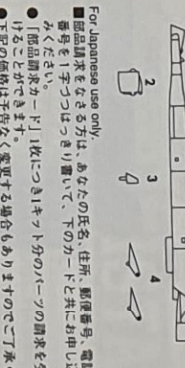 2
3
4
For Japanese use only.
■部品請求をなさる方は、あなたの氏名、住所、郵便番号、電
番号を1字づつはっきり書いて、下のカードと共にお申し込
みください。
●「部品請求カード」1枚につき1キット分のパーツの請求を
けることができます。
●下記の価格は予告なく変更する場合もありますのでご了承